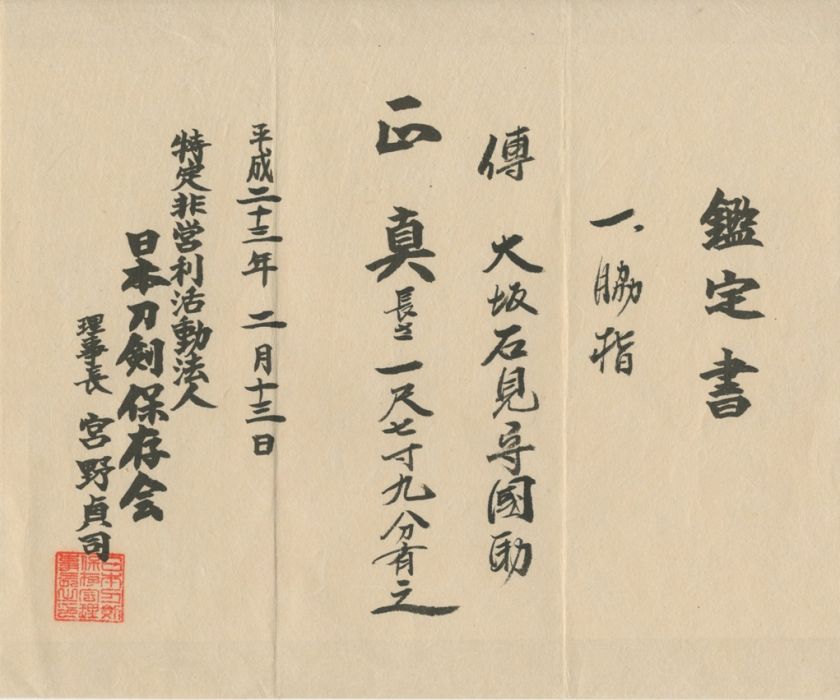 鑑定書
一、脇指
傳 大坂石見守國助
正真 長さ一尺七寸九分有之
平成二十三年 二月十三日
特定非営利活動法人
日本刀剣保存会
理事長 宮野貞司